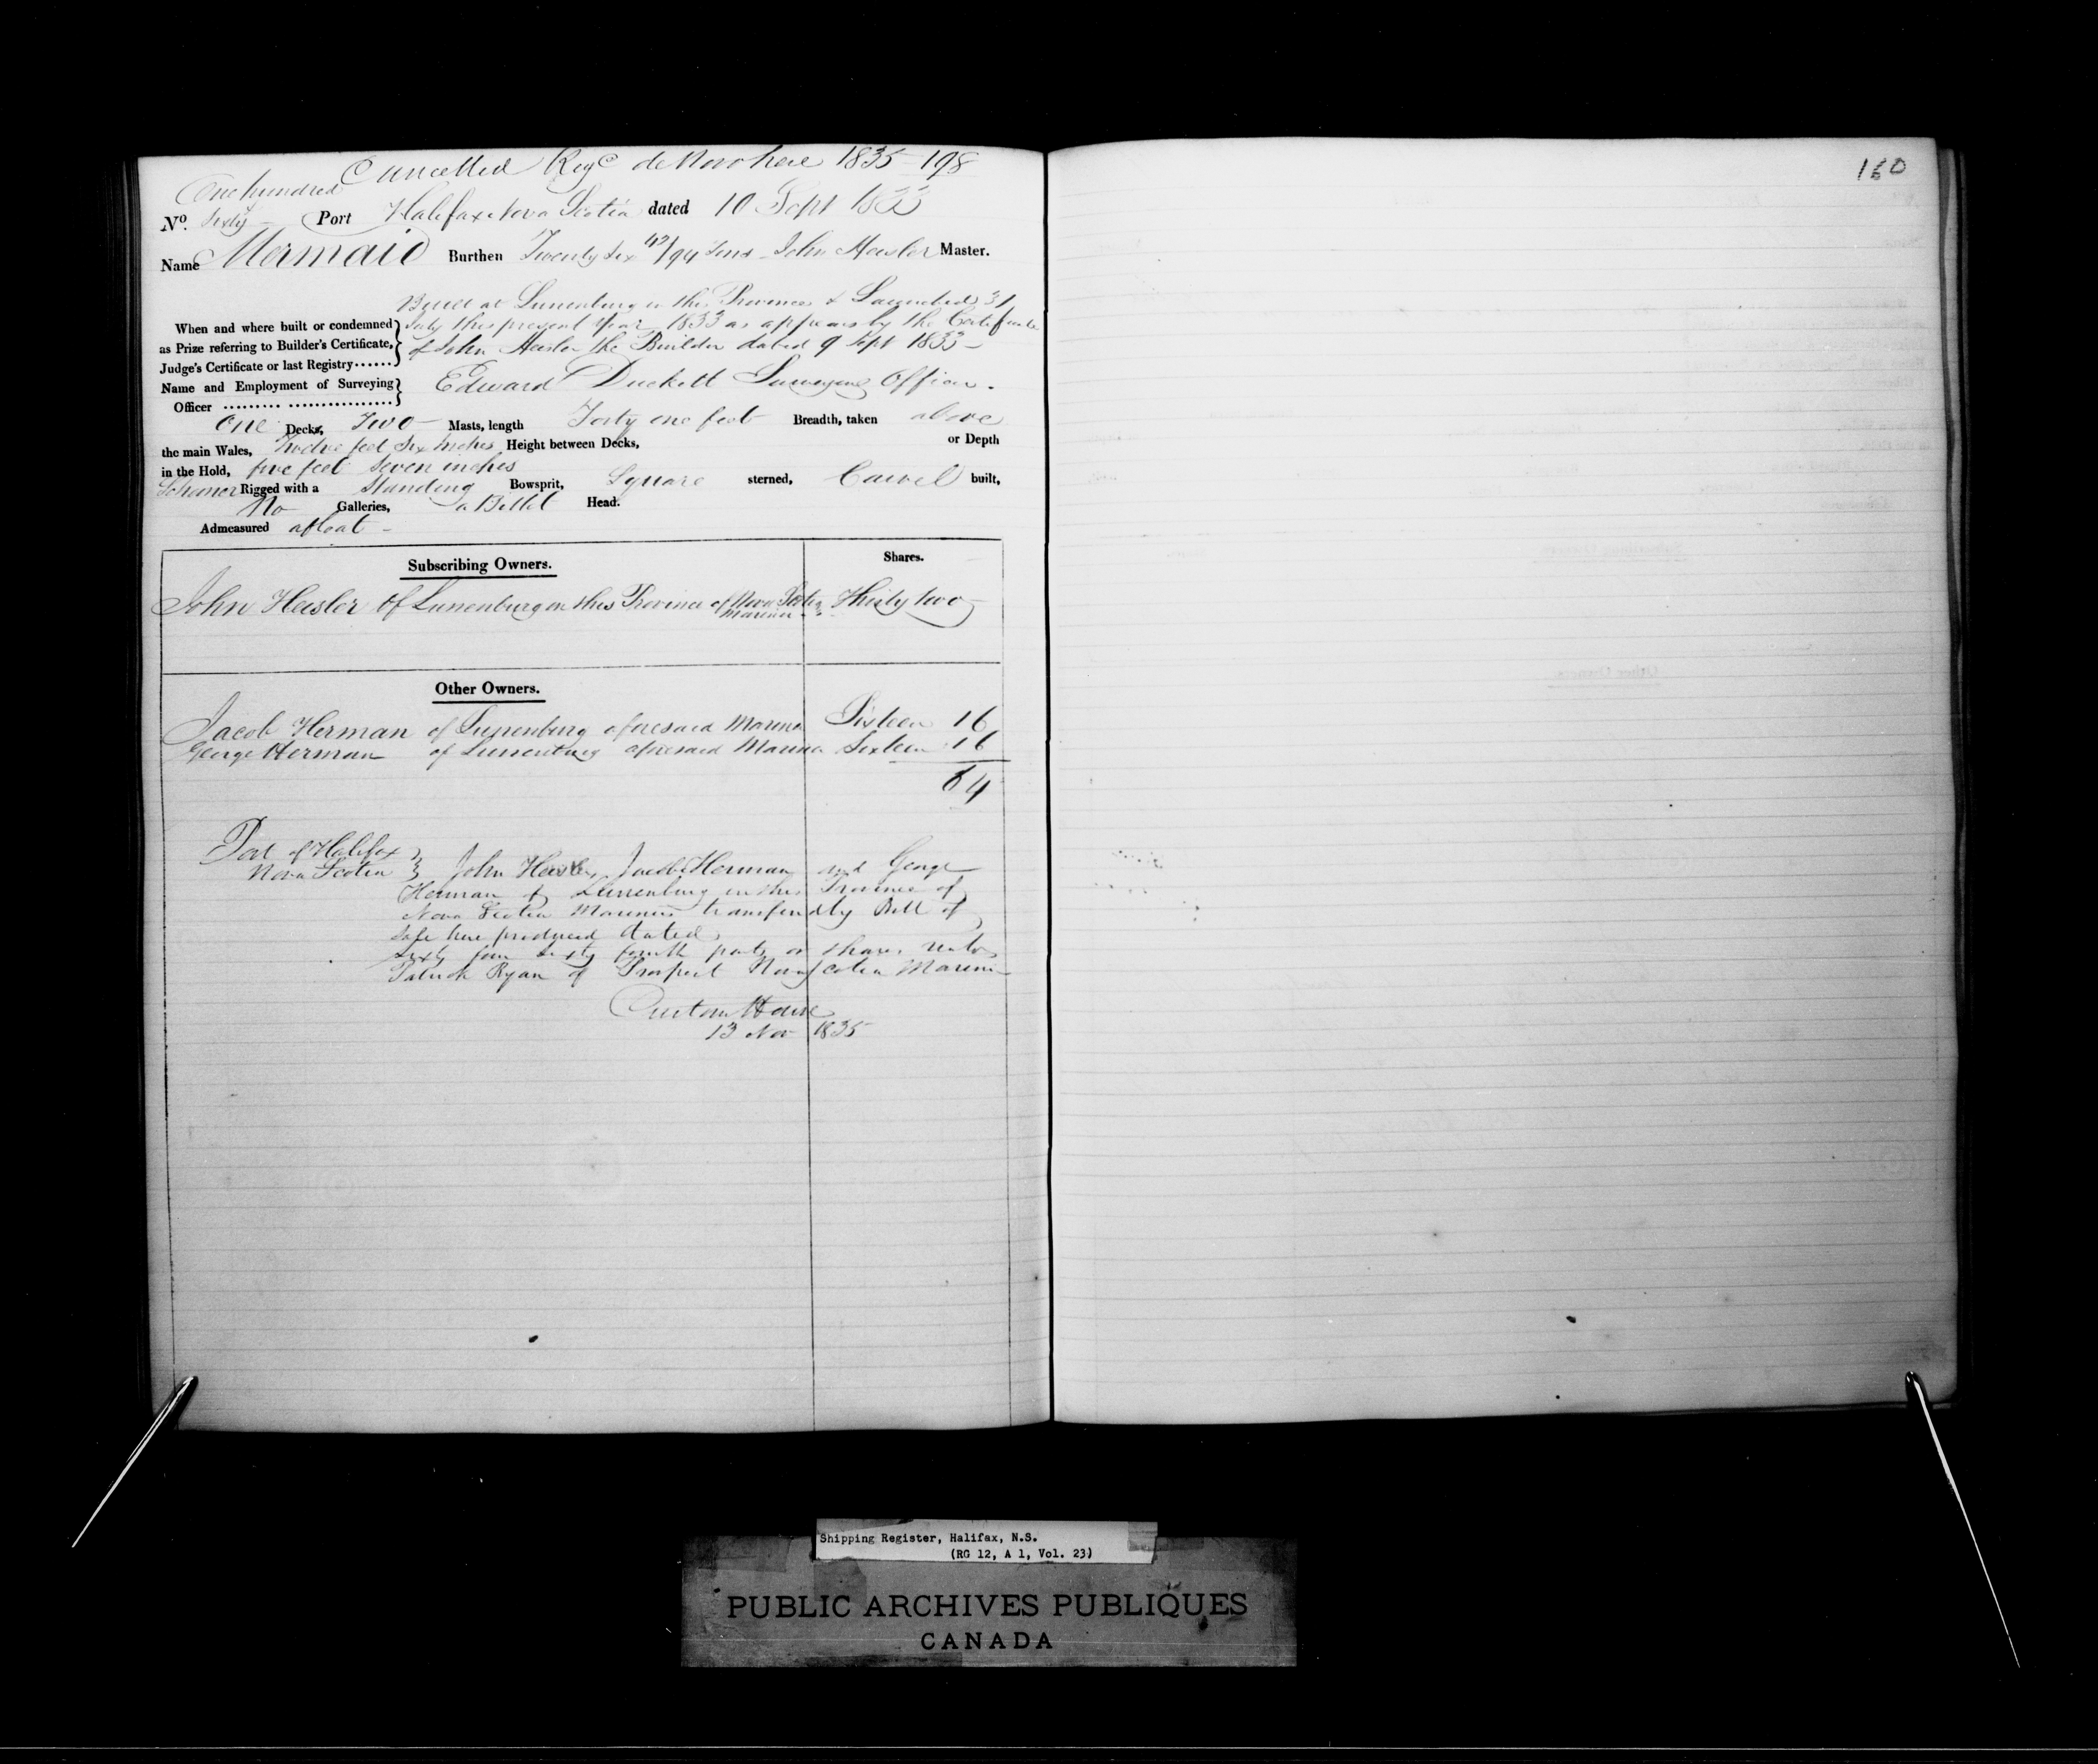 Cancelled Reg^d de Novo here 1835 - 198
160
One hundred
No. Sixty - Port Halifax Nova Scotia dated 10 Sept 1833
Name Mermaid Burthen Twenty Six 42/94 Tons - John Heisler Master.
Built at Lunenburg in this Province & Launched 31
When and where built or condemned July this present Year 1833 as appears by the Certificate
as Prize referring to Builder's Certificate, of John Heisler the Builder dated 9 Sept 1833 -
Judge's Certificate or last Registry......
Name and Employment of Surveying Edward Duckett Surveying Officer.
Officer ......... ................
One Decks, Two - Masts, length Forty one feet Breadth, taken above
the main Wales, Twelve feet Six inches Height between Decks, or Depth
in the Hold, five feet seven inches
Schooner Rigged with a Standing Bowsprit, Square sterned, Carvel built,
No Galleries, a Billet Head.
Admeasured afloat -
Subscribing Owners. Shares.
John Heisler of Lunenburg in this Province of Nova Scotia Thirty two
Mariner
Other Owners.
Jacob Herman of Lunenburg aforesaid Mariner Sixteen 16
George Herman of Lunenburg aforesaid Mariner Sixteen 16
64
Port of Halifax
Nova Scotia } John Heisler, Jacob Herman and George
Herman of Lunenburg in this Province of
Nova Scotia Mariners transferred by Bill of
Sale here produced dated
sixty four sixty fourth parts or shares unto
Patrick Ryan of Prospect Nova Scotia Mariner
Custom House
13 Nov 1835
Shipping Register, Halifax, N.S.
(RG 12, A 1, Vol. 23)
PUBLIC ARCHIVES PUBLIQUES
CANADA